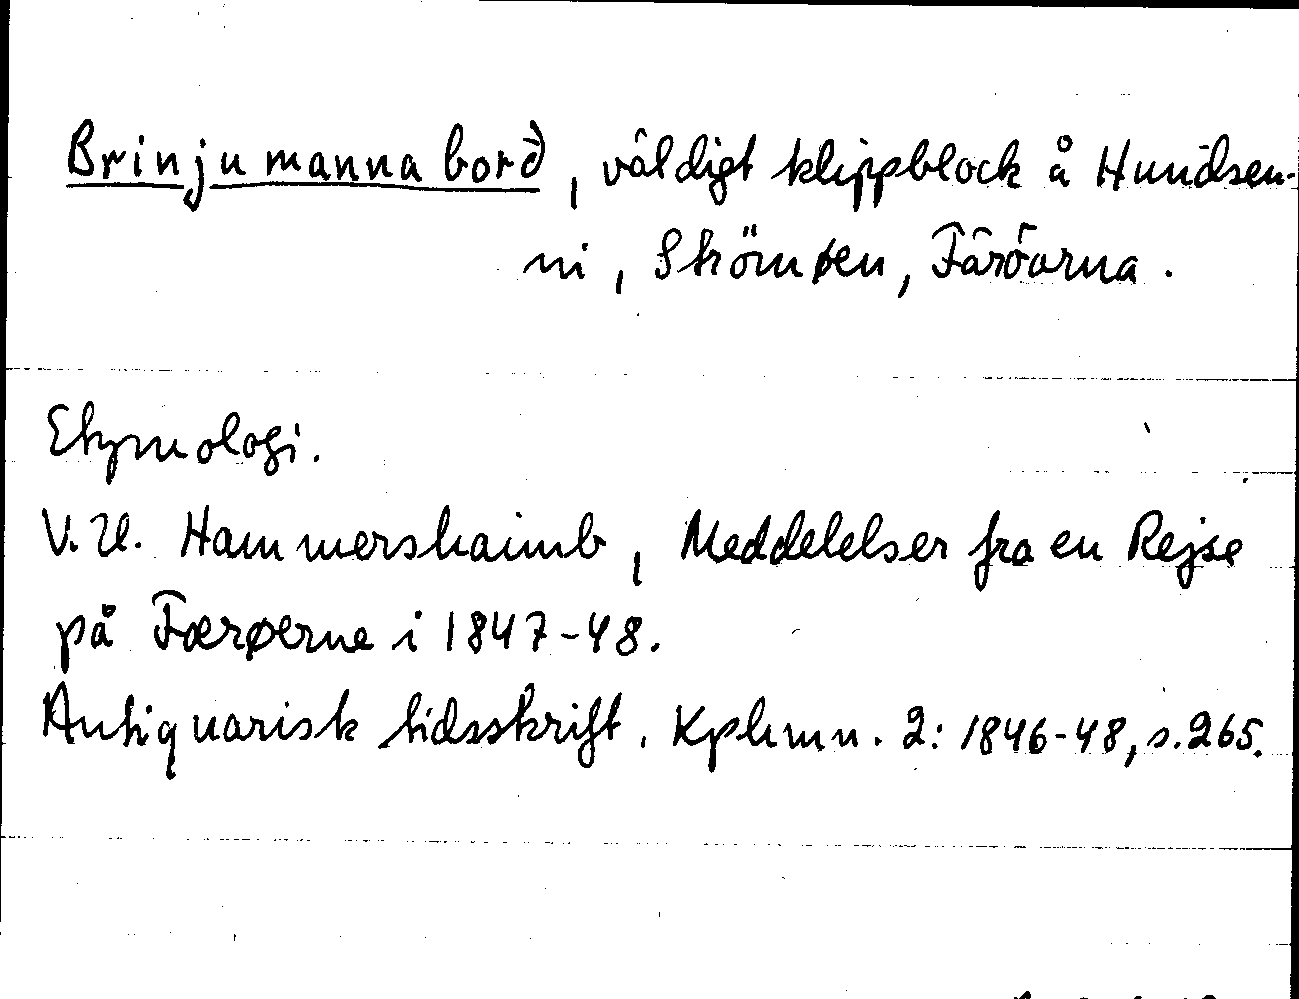 Brinjumannaborð, väldigt klippblock å Hundsen-
ni, Strömøen, Färöarna.
Etymologi.
V.U. Hammershaimb, Meddelelser fra en Rejse
på Færøerne i 1847-48.
Antiquarisk tidsskrift. Kphmn. 2: 1846-48, s. 265.